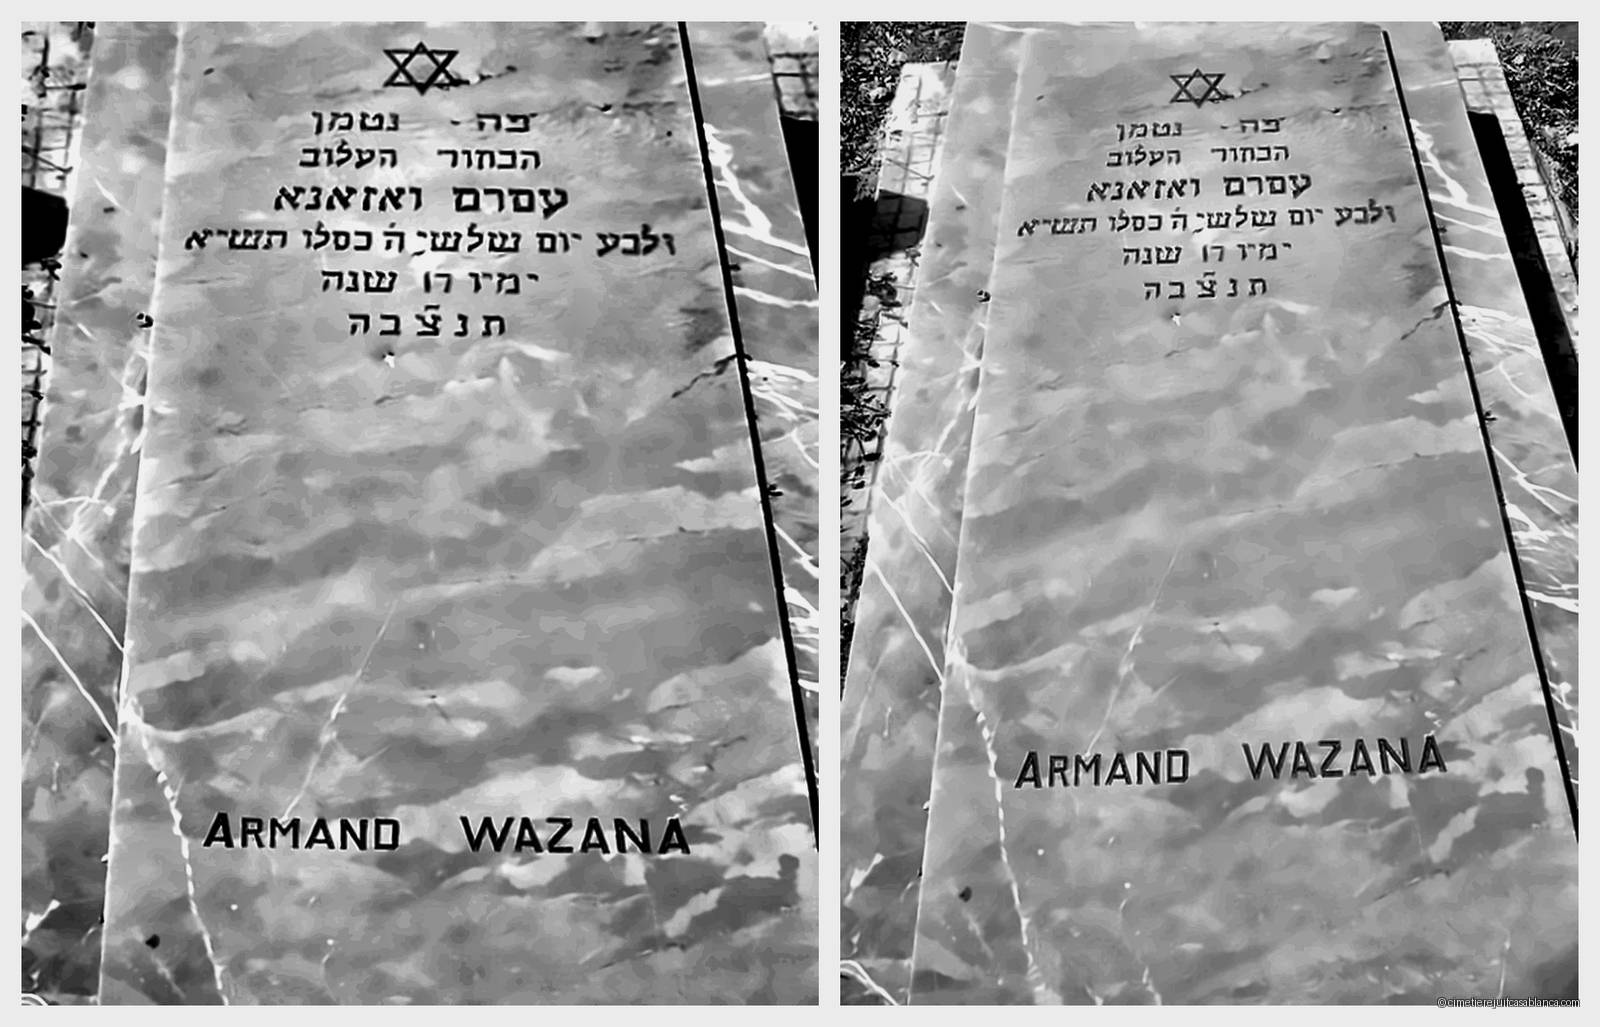 פה - נטמן
הבחור העלוב
עמרם ואזאנא
ולבע יום שלשי ה' כסלו תש"יא
ימיו שנה
ת נ צ ב ה
ARMAND WAZANA
פה - נטמן
הבחור העלוב
עמרם ואזאנא
ולבע יום שלשי ה' כסלו תש"יא
ימיו שנה
ת נ צ ב ה
ARMAND WAZANA
©cimetierejuifcasablanca.com